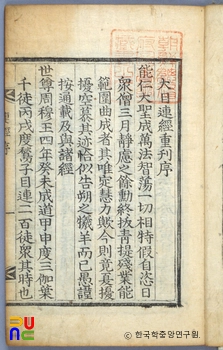 大目連經重刊序
能仁大聖成萬法智蕩一切相特假自恣日
衆僧三月靜慮之餘勳終抜青提殘業能
範圍曲成者其唯定慧力歟今則竟莫擾
擾空慕其迹恪似告朔之犠羊而已愚謹
按通載及與諸經
世尊周穆王四年癸未成道甲申度三伽葉
千徒丙戌度鶖子目連二百徒衆其時也
© 한국학중앙연구원